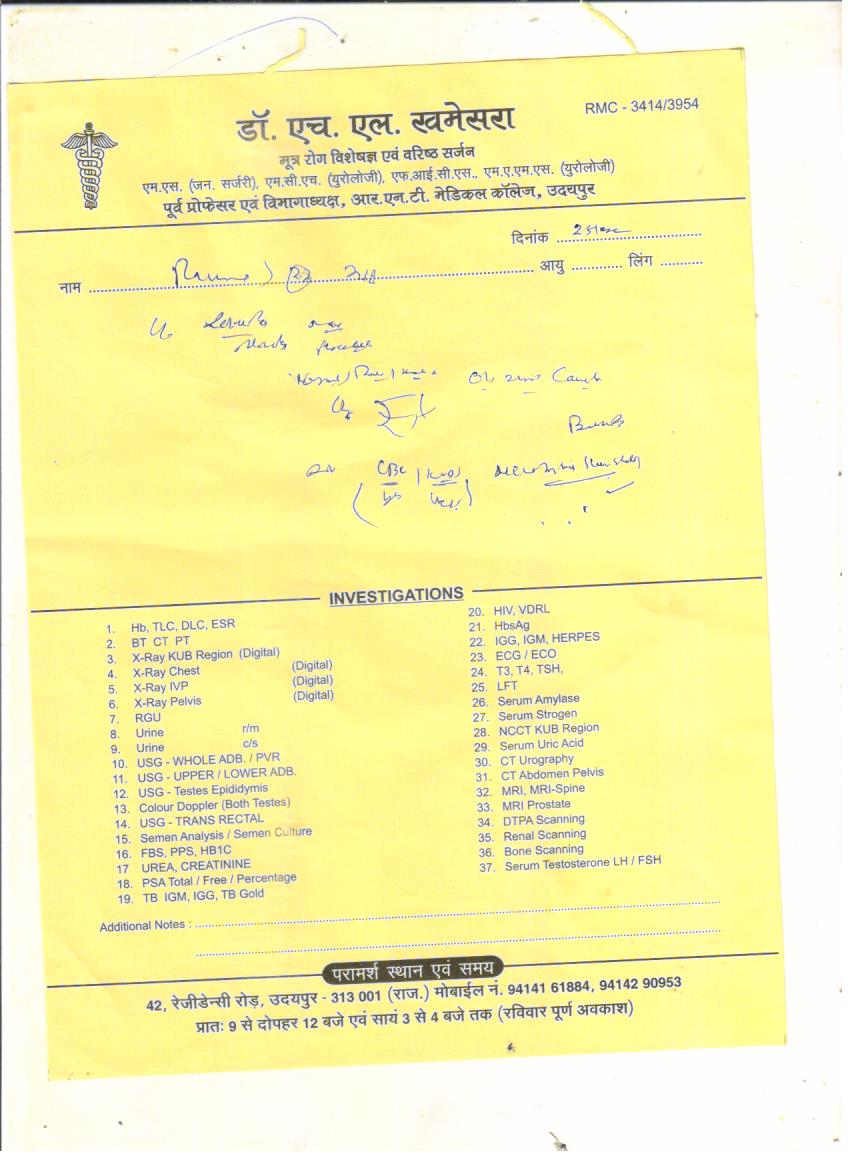 डॉ. एच. एल. खमेसरा
RMC - 3414/3954
मूत्र रोग विशेषज्ञ एवं वरिष्ठ सर्जन
एम.एस. (जन. सर्जरी), एम.सी.एच. (युरोलोजी), एफ.आई.सी.एस., एम.ए.एम.एस. (युरोलोजी)
पूर्व प्रोफेसर एवं विभागाध्यक्ष, आर.एन.टी. मेडिकल कॉलेज, उदयपुर
दिनांक
नाम आयु लिंग
CBC
INVESTIGATIONS
1. Hb, TLC, DLC, ESR
2. BT CT PT
3. X-Ray KUB Region (Digital)
4. X-Ray Chest (Digital)
5. X-Ray IVP (Digital)
6. X-Ray Pelvis (Digital)
7. RGU
8. Urine r/m
9. Urine c/s
10. USG - WHOLE ADB. / PVR
11. USG - UPPER / LOWER ADB.
12. USG - Testes Epididymis
13. Colour Doppler (Both Testes)
14. USG - TRANS RECTAL
15. Semen Analysis / Semen Culture
16. FBS, PPS, HB1C
17 UREA, CREATININE
18. PSA Total / Free / Percentage
19. TB IGM, IGG, TB Gold
20. HIV, VDRL
21. HbsAg
22. IGG, IGM, HERPES
23. ECG / ECO
24. T3, T4, TSH,
25. LFT
26. Serum Amylase
27. Serum Strogen
28. NCCT KUB Region
29. Serum Uric Acid
30. CT Urography
31. CT Abdomen Pelvis
32. MRI, MRI-Spine
33. MRI Prostate
34. DTPA Scanning
35. Renal Scanning
36. Bone Scanning
37. Serum Testosterone LH / FSH
Additional Notes :
परामर्श स्थान एवं समय
42, रेजीडेन्सी रोड़, उदयपुर - 313 001 (राज.) मोबाईल नं. 94141 61884, 94142 90953
प्रातः 9 से दोपहर 12 बजे एवं सायं 3 से 4 बजे तक (रविवार पूर्ण अवकाश)